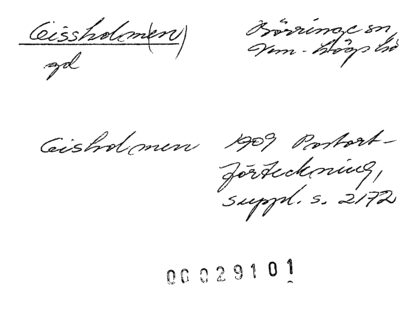 Lissholm(en) Börringe sn,
gd Vem-högs hd
Lisholmen 1909 Postort-
förteckning,
suppl. s. 2172
00029101